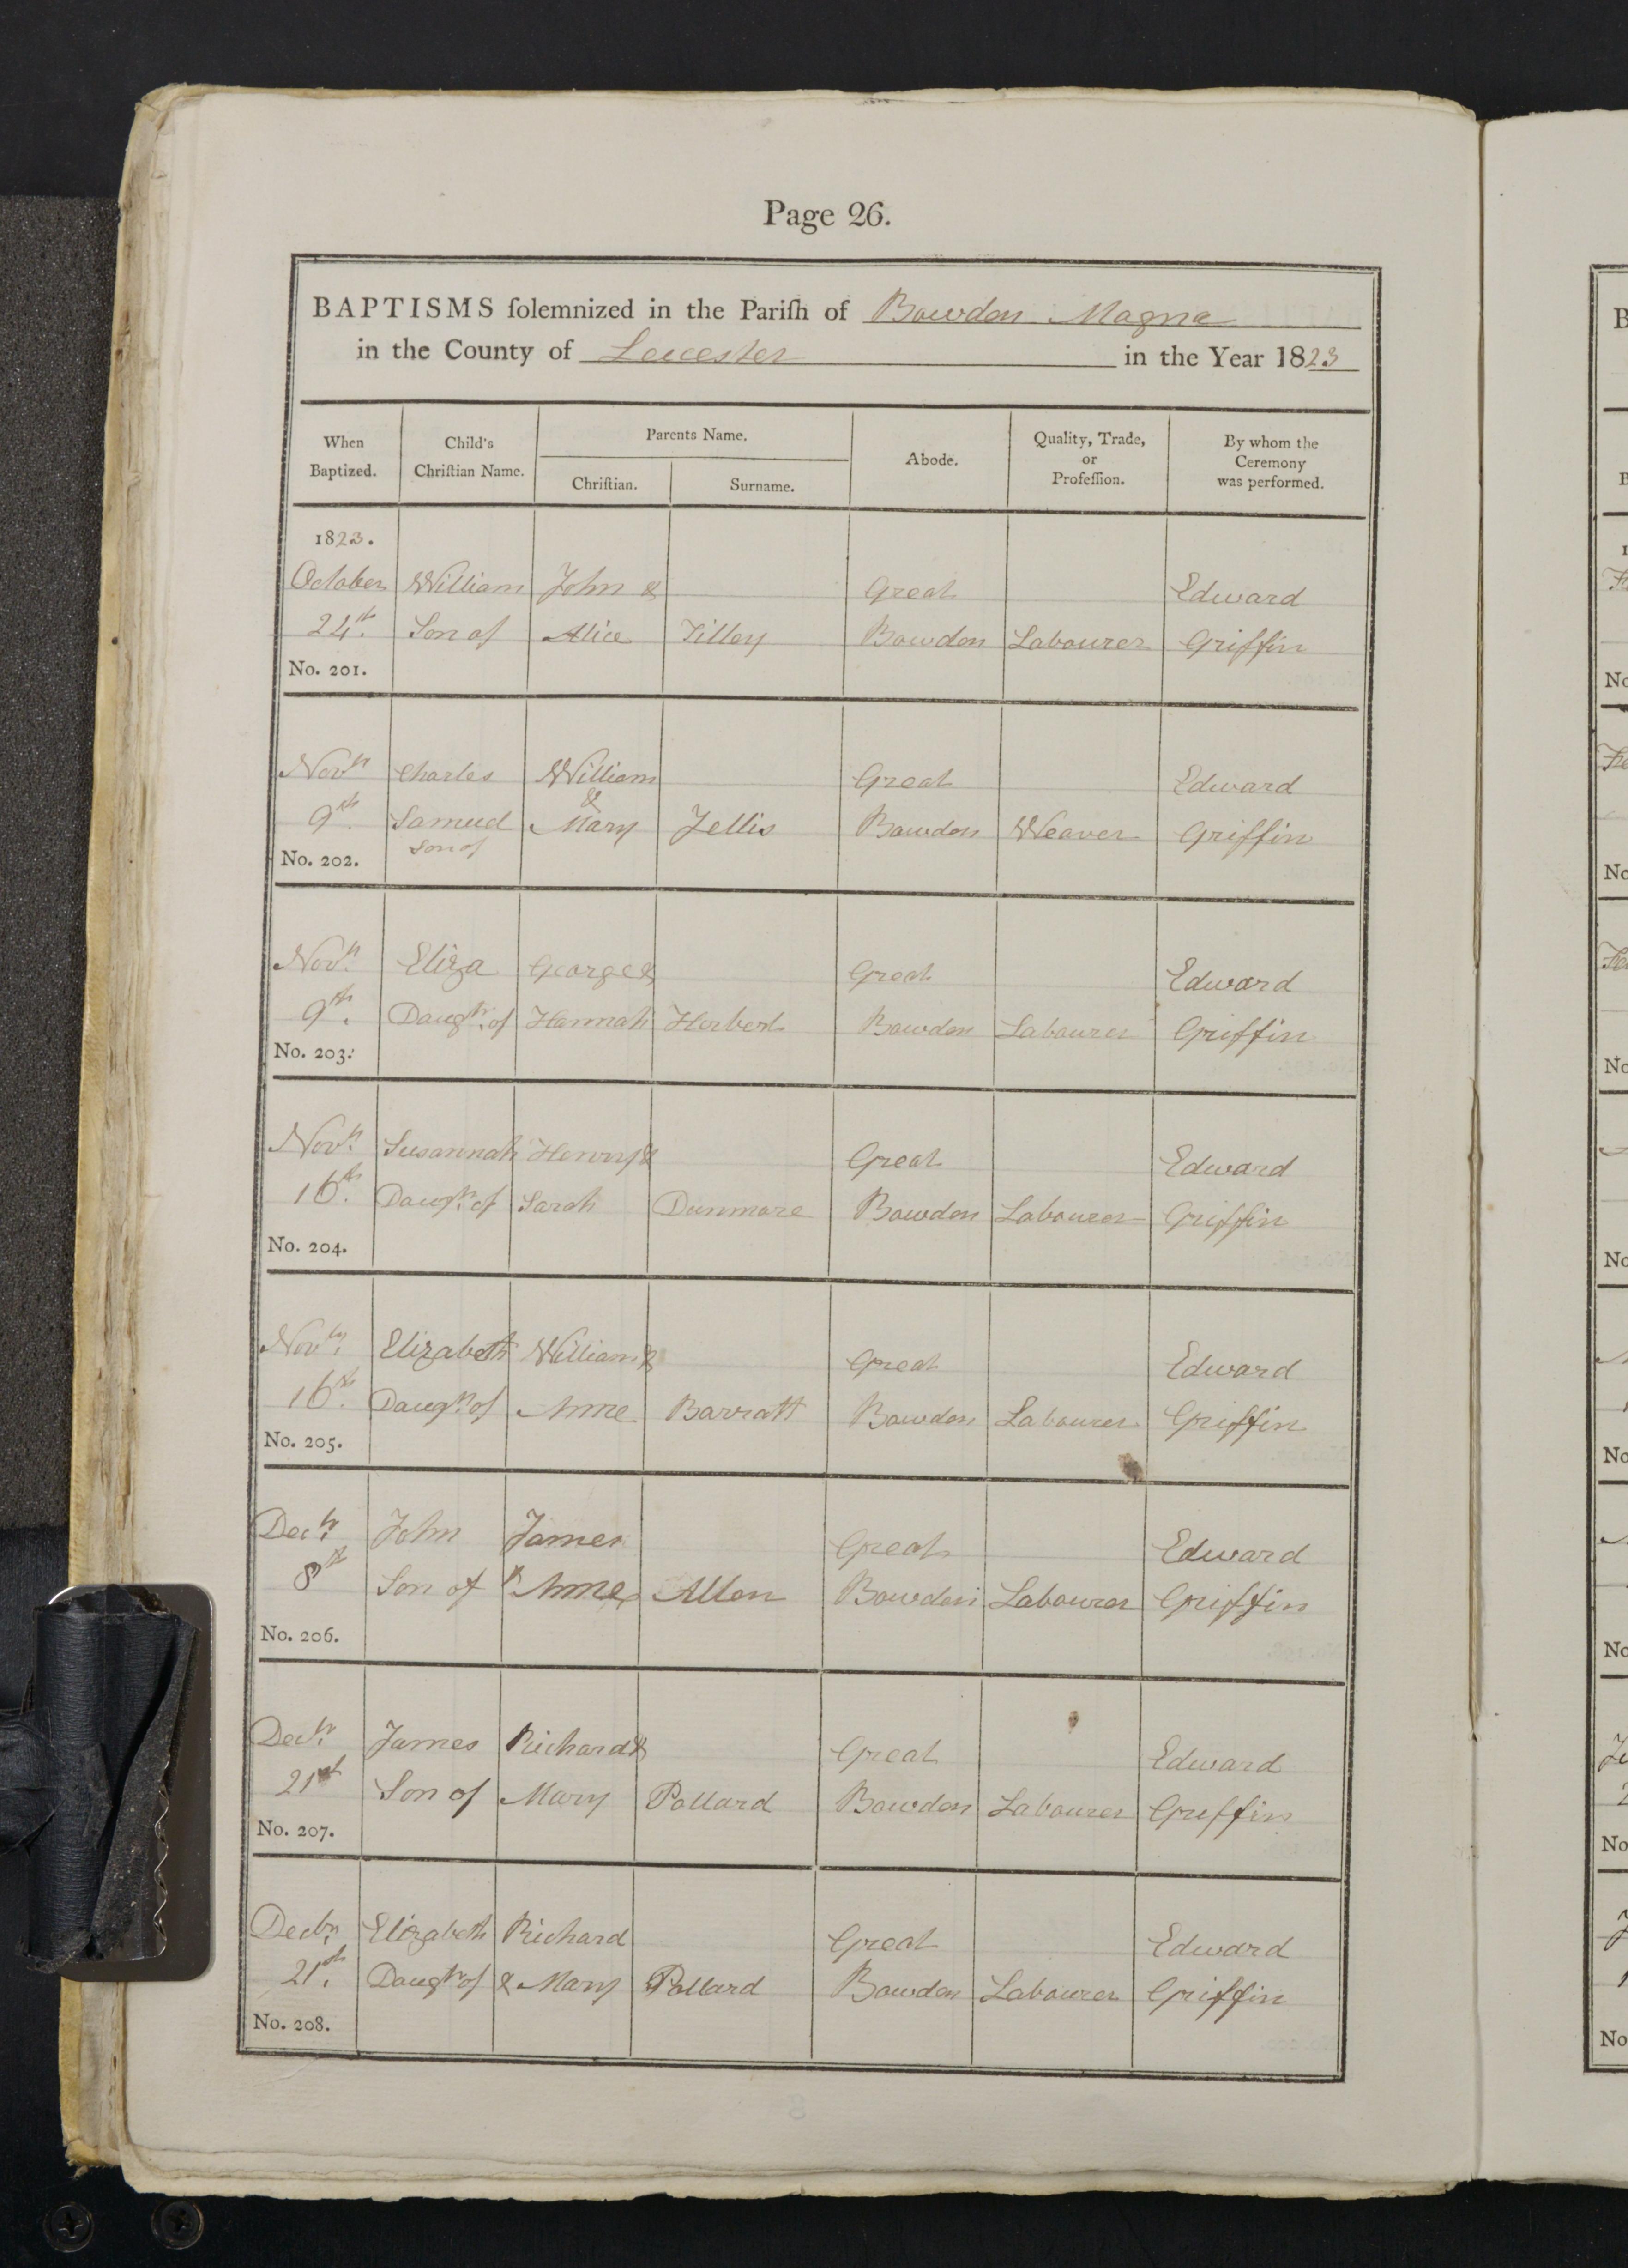 Page 26.
BAPTISMS ſolemnized in the Pariſh of Bowden Magna
in the County of Leicester in the Year 1823
When Baptized. Child's Chriſtian Name. Parents Name. Chriſtian. Surname. Abode. Quality, Trade, or Profeſſion. By whom the Ceremony was performed.
1823.
October William John & Great Edward
24th. Son of Alice Tilley Bowden Labourer Griffin
No. 201.
Novr Charles William Great Edward
&
9th. Samuel Mary Jellis Bowden Weaver Griffin
Son of
No. 202.
Novr. Eliza George & Great Edward
9th. Daughr. of Hannah Herbert Bowden Labourer Griffin
No. 203.
Novr. Susannah Henry & Great Edward
16th. Daughr. of Sarah Dunmore Bowden Labourer Griffin
No. 204.
Novbr. Elizabeth William & Great Edward
16th. Daughr. of Anne Barratt Bowden Labourer Griffin
No. 205.
Decr. John James Great Edward
8th Son of & Anne Allen Bowden Labourer Griffin
No. 206.
Decr. James Richard & Great Edward
21st Son of Mary Pollard Bowden Labourer Griffin
No. 207.
Decbr. Elizabeth Richard Great Edward
21st. Daughr of & Mary Pollard Bowden Labourer Griffin
No. 208.